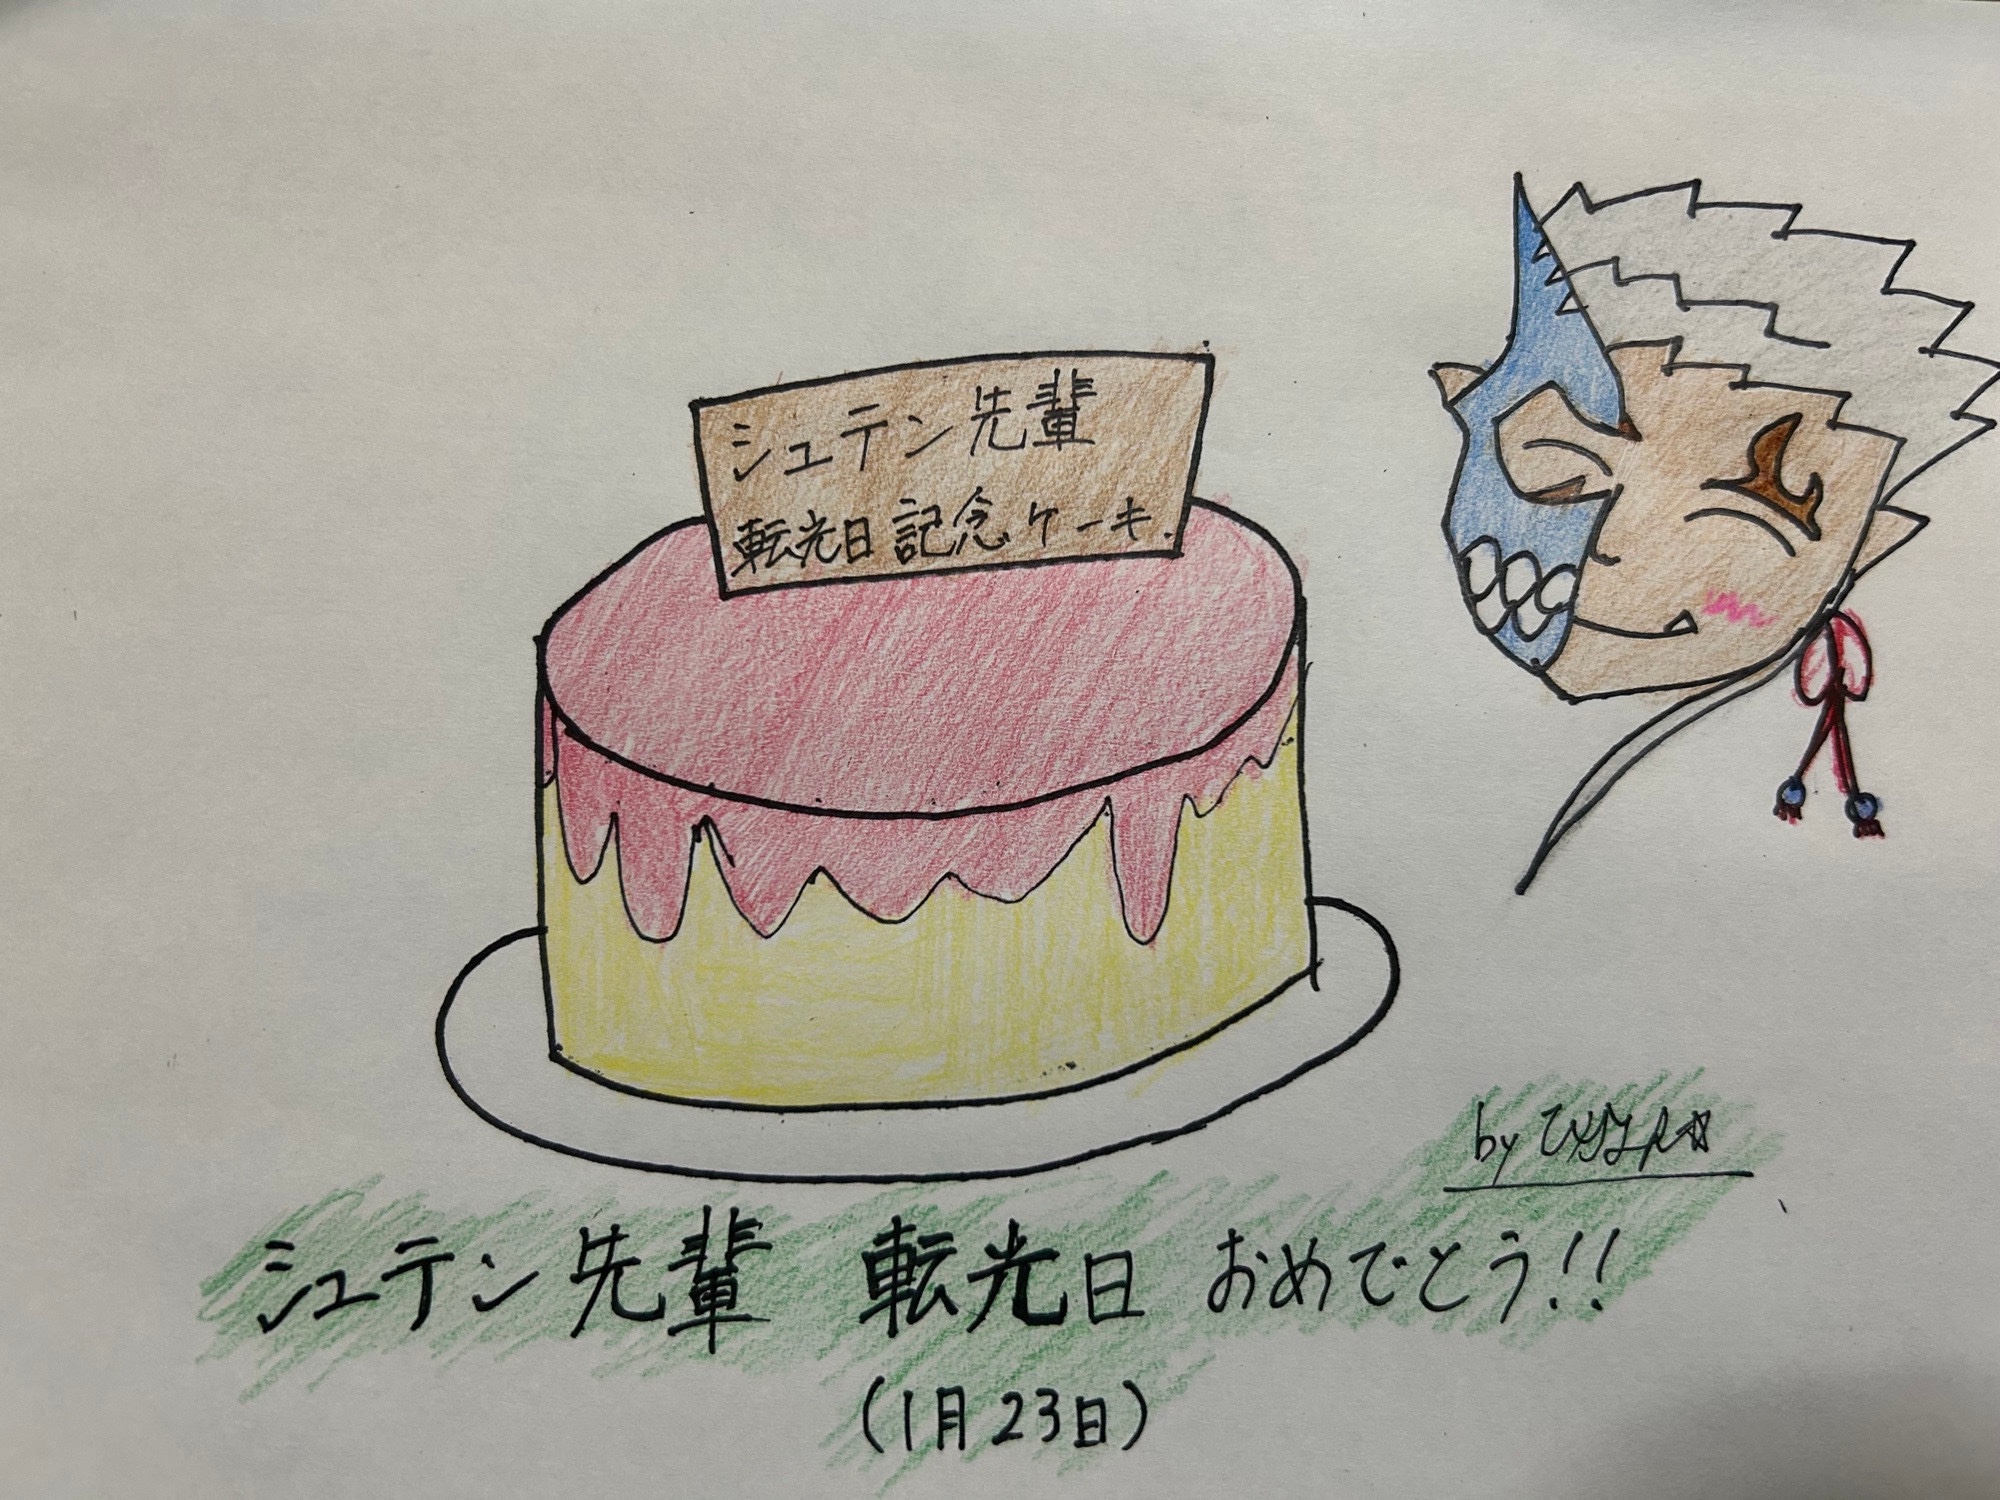 シュテン先輩
転光日記念ケーキ.
by
シュテン先輩 転光日 おめでとう!!
(1月23日)